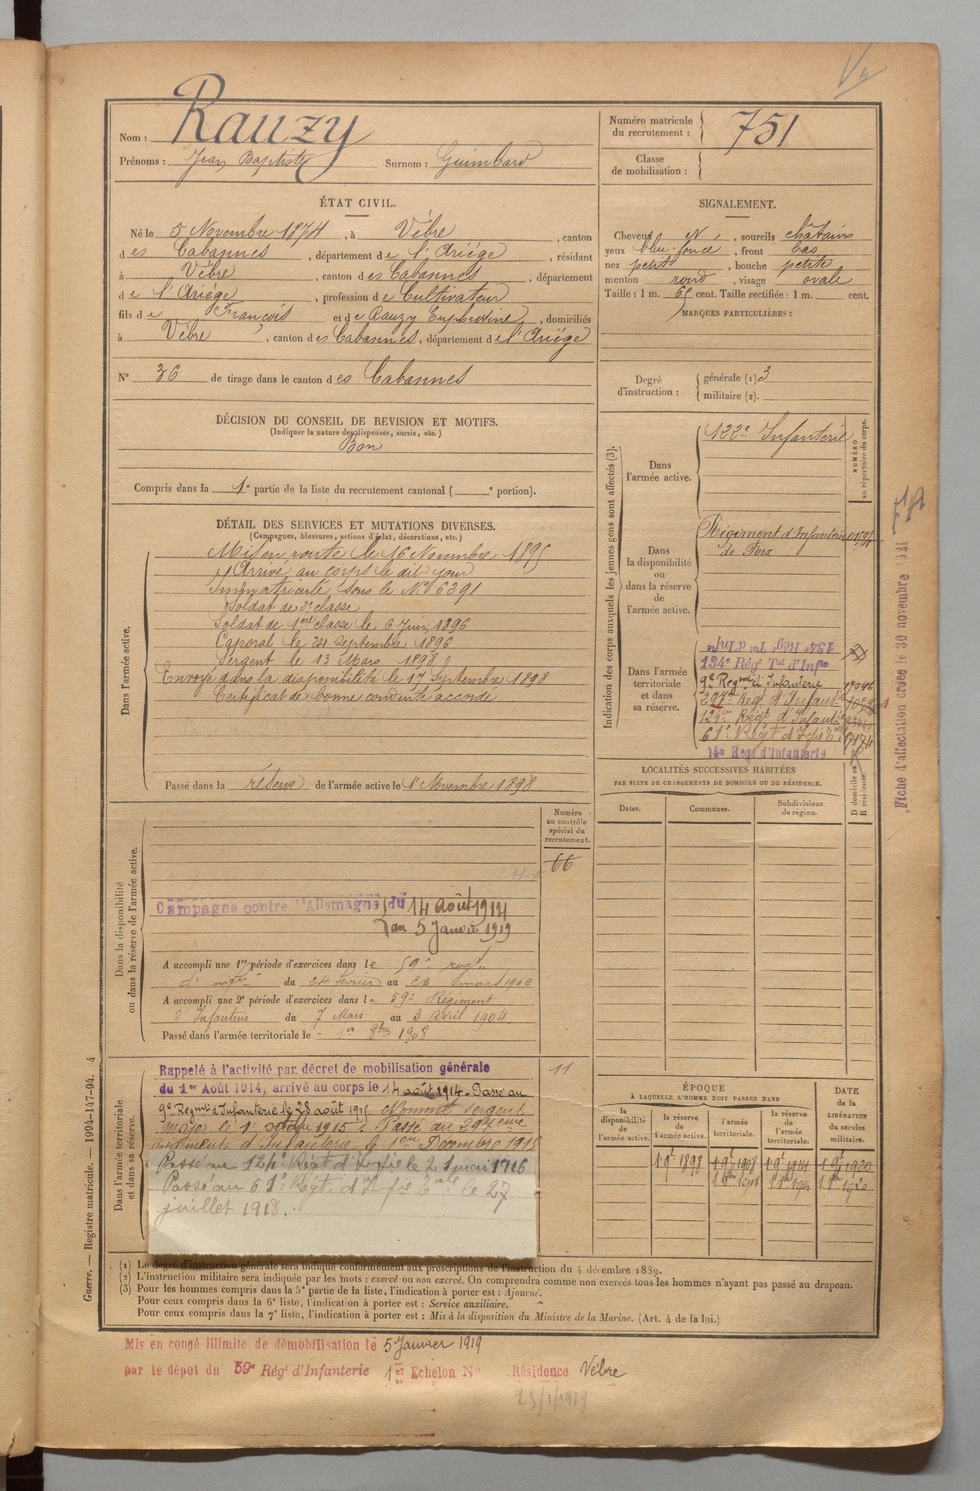 Nom : Rauzy
Prénoms : Jean Baptiste Surnom : Guimbard
Numéro matricule du recrutement : 751
Classe de mobilisation :
ÉTAT CIVIL.
Né le 5 Novembre 1874, à Vèbre, canton
des Cabannes, département de l'Ariège, résidant
à Vèbre, canton des Cabannes, département
de l'Ariège, profession de Cultivateur
fils de François et de Rauzy Euphrosine, domiciliés
à Vèbre, canton des Cabannes, département de l'Ariège
N° 36 de tirage dans le canton des Cabannes
SIGNALEMENT.
Cheveux N, sourcils châtains
yeux bleu foncé, front bas
nez petit, bouche petite
menton rond, visage ovale
Taille : 1 m. 65 cent. Taille rectifiée : 1 m. cent.
MARQUES PARTICULIÈRES :
Degré d'instruction : générale (1) 3
militaire (2).
DÉCISION DU CONSEIL DE REVISION ET MOTIFS.
(Indiquer la nature des dispenses, sursis, etc.)
Bon
Compris dans la 1e partie de la liste du recrutement cantonal ( e portion).
DÉTAIL DES SERVICES ET MUTATIONS DIVERSES.
(Campagnes, blessures, actions d'éclat, décorations, etc.)
Dans l'armée active.
Mis en route le 16 Novembre 1895
Arrivé au corps le dit jour
Immatriculé sous le N° 6291
Soldat de 2e classe
Soldat de 1ère classe le 6 Juin 1896
Caporal le 21 Septembre 1896
Sergent le 13 Mars 1898
Envoyé dans la disponibilité le 17 Septembre 1898
Certificat de bonne conduite accordé
Passé dans la réserve de l'armée active le 1er Novembre 1898
Indication des corps auxquels les jeunes gens sont affectés (3).
NUMÉRO au répertoire du corps.
Dans l'armée active.
122e Infanterie
Dans la disponibilité ou dans la réserve de l'armée active.
Régiment d'Infanterie
de Foix
Dans l'armée territoriale et dans sa réserve.
134e Régt Tal d'Infie
134e Régt Tal d'Infie
9e Regmt d'Infanterie
297e Régt d'Infant
124e Régt d'Infant
61e Régt d'Infie Tale
14e Régt d'Infanterie
Fiche d'affectation créée le 30 novembre
LOCALITÉS SUCCESSIVES HABITÉES
PAR SUITE DE CHANGEMENTS DE DOMICILE OU DE RÉSIDENCE.
Dates. Communes. Subdivisions de région. D domicile ou R résidence.
Dans la disponibilité ou dans la réserve de l'armée active.
Numéro au contrôle spécial du recrutement.
66
Campagne contre l'Allemagne du 14 août 1914
au 5 Janvier 1919
A accompli une 1re période d'exercices dans le 59e regt
d'inftie du 24 février au 23 mars 1902
A accompli une 2e période d'exercices dans le 59e Régiment
d'Infanterie du 7 Mars au 3 Avril 1904.
Passé dans l'armée territoriale le 1er 8bre 1908
Dans l'armée territoriale et dans sa réserve.
11
Rappelé à l'activité par décret de mobilisation générale
du 1er Août 1914, arrivé au corps le 14 août 1914. Passé au
9e Regmt d'Infanterie le 28 août 1915 Nommé sergent
major le 1er octobre 1915. Passé au 297ème
Régiment d'Infanterie le 1er Décembre 1915
Passé au 124e Régt d'Infie le 21 mai 1916
Passé au 61e Régt. d'Infie Tale le 27
juillet 1918.
ÉPOQUE
À LAQUELLE L'HOMME DOIT PASSER DANS
la disponibilité de l'armée active. la réserve de l'armée active. l'armée territoriale. la réserve de l'armée territoriale.
DATE de la LIBÉRATION du service militaire.
1 9e 1898 1 9e 1908 1 9e 1914 1 9e 1920
Guerre. — Registre matricule. — 1994-147-94. 4
(1) Le degré d'instruction générale sera indiqué conformément aux prescriptions de l'instruction du 4 décembre 1889.
(2) L'instruction militaire sera indiquée par les mots : exercé ou non exercé. On comprendra comme non exercés tous les hommes n'ayant pas passé au drapeau.
(3) Pour les hommes compris dans la 5e partie de la liste, l'indication à porter est : Ajourné.
Pour ceux compris dans la 6e liste, l'indication à porter est : Service auxiliaire.
Pour ceux compris dans la 7e liste, l'indication à porter est : Mis à la disposition du Ministre de la Marine. (Art. 4 de la loi.)
Mis en congé illimité de démobilisation le 5 Janvier 1919
par le dépôt du 59e Régt d'Infanterie 1er Echelon N° Résidence Vèbre
25/1/1919